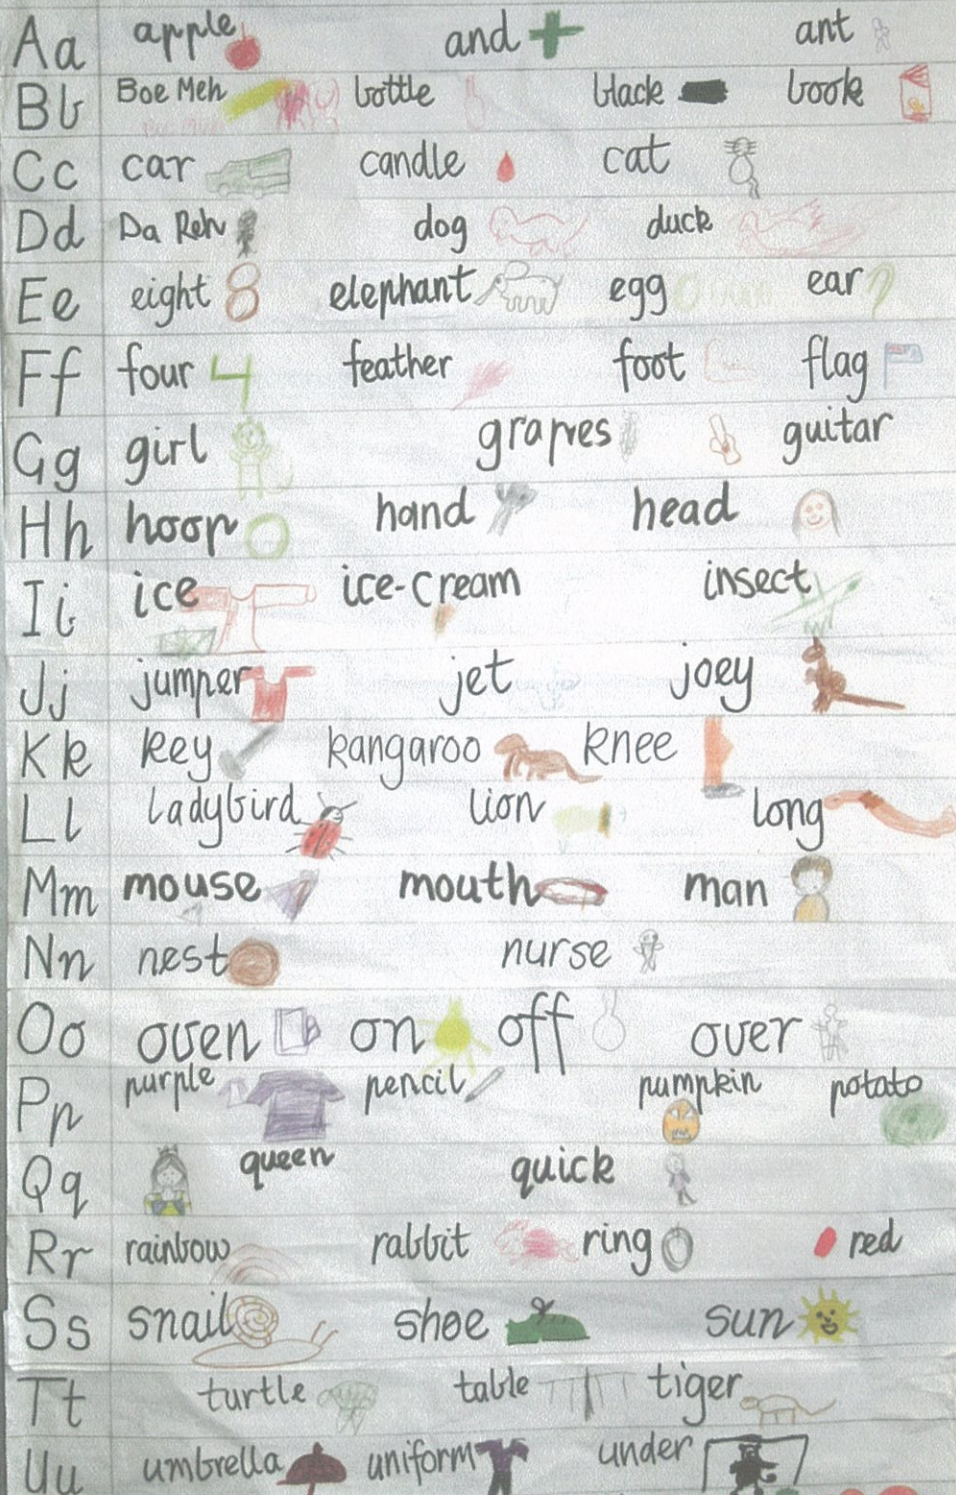 Aa apple and ant
Bb Boe Meh bottle black book
Cc car candle cat
Dd Da Reh dog duck
Ee eight elephant egg ear
Ff four feather foot flag
Gg girl grapes guitar
Hh hoop hand head
Ii ice ice-cream insect
Jj jumper jet joey
Kk key kangaroo knee
Ll ladybird lion long
Mm mouse mouth man
Nn nest nurse
Oo oven on off over
Pp purple pencil pumpkin potato
Qq queen quick
Rr rainbow rabbit ring red
Ss snail shoe sun
Tt turtle table tiger
Uu umbrella uniform under